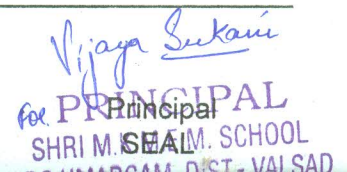 Vijaya Sukani
For PRINCIPAL
Principal
SHRI M. M. SCHOOL
SEAL
UMARGAM, DIST - VALSAD